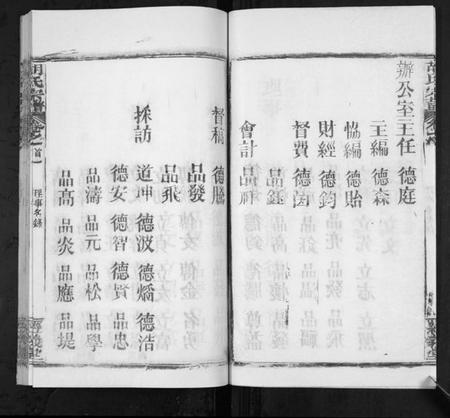 胡氏宗譜
辦公室主任 德庭
主編 德森
協編 德貽
財經 德鈞
督費 德茵 品鈺
會計 品福
督稿 德勝 品發 品飛
採訪 道坤 德波 德嬌 德浩
德安 德智 德賢 品忠
品濤 品元 品松 品學
品高 品炎 品應 品堤
胡氏宗譜 卷首
理事名錄